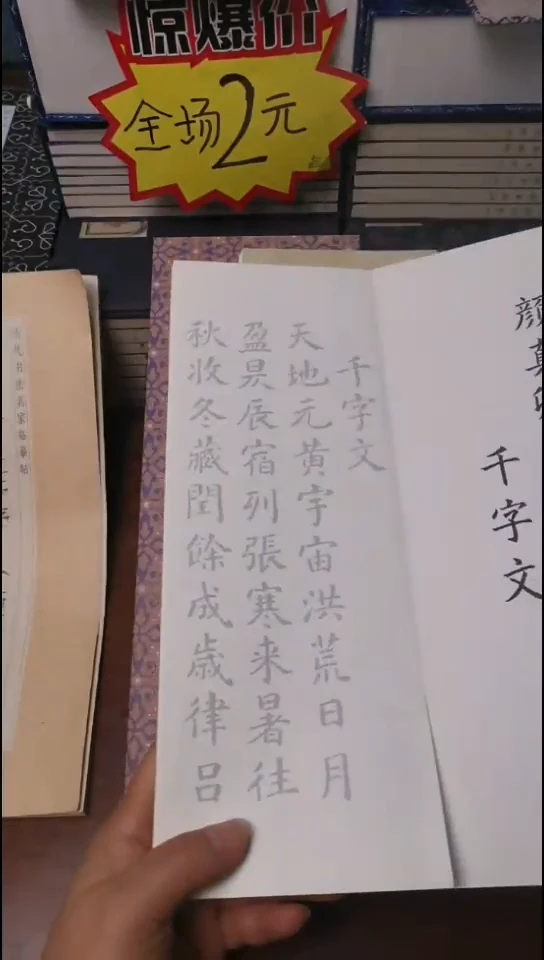 惊爆价
全场2元
千字文
天地元黄宇宙洪荒日月
盈昃辰宿列張寒来暑往
秋收冬藏閏餘成歲律吕
千字文